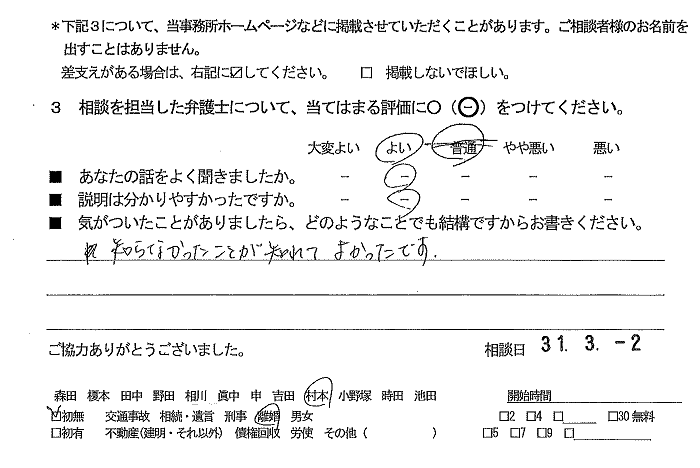 ＊下記３について、当事務所ホームページなどに掲載させていただくことがあります。ご相談者様のお名前を
出すことはありません。
差支えがある場合は、右記に☑してください。　□ 掲載しないでほしい。
３　相談を担当した弁護士について、当てはまる評価に○（⊖）をつけてください。
大変よい　よい　普通　やや悪い　悪い
■ あなたの話をよく聞きましたか。　－　－　－　－　－
■ 説明は分かりやすかったですか。　－　－　－　－　－
■ 気がついたことがありましたら、どのようなことでも結構ですからお書きください。
知らなかったことが知れてよかったです.
ご協力ありがとうございました。　相談日 31. 3. -2
森田　榎本　田中　野田　相川　眞中　申　吉田　村本　小野塚　時田　池田　開始時間
☑初無　交通事故　相続・遺言　刑事　離婚　男女　□2　□4　□　□30 無料
□初有　不動産(建明・それ以外)　債権回収　労使　その他（　　　）　□5　□7　□9　□